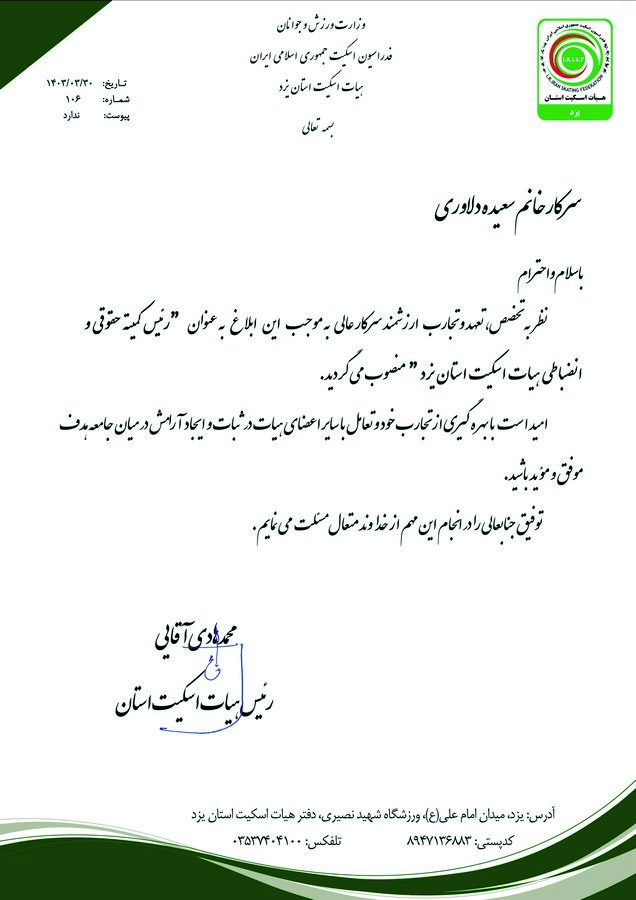 وزارت ورزش و جوانان
فدراسیون اسکیت جمهوری اسلامی ایران
هیات اسکیت استان یزد
بسمه تعالی
I.R.I.S.F
I.R.IRAN SKATING FEDERATION
هیات اسکیت استان
یزد
تاریخ: ۱۴۰۳/۰۳/۳۰
شماره: ۱۰۶
پیوست: ندارد
سرکار خانم سعیده دلاوری
با سلام و احترام
نظر به تخصص، تعهد و تجارب ارزشمند سرکار عالی به موجب این ابلاغ به عنوان "رئیس کمیته حقوقی و
انضباطی هیات اسکیت استان یزد" منصوب می گردید.
امید است با بهره گیری از تجارب خود و تعامل با سایر اعضای هیات در ثبات و ایجاد آرامش در میان جامعه هدف
موفق و مؤید باشید.
توفیق جنابعالی را در انجام این مهم از خداوند متعال مسئلت می نمایم.
محمدهادی آقایی
رئیس هیات اسکیت استان
آدرس: یزد، میدان امام علی(ع)، ورزشگاه شهید نصیری، دفتر هیات اسکیت استان یزد
کدپستی: ۸۹۴۷۱۳۶۸۸۳ تلفکس: ۰۳۵۳۷۴۰۴۱۰۰